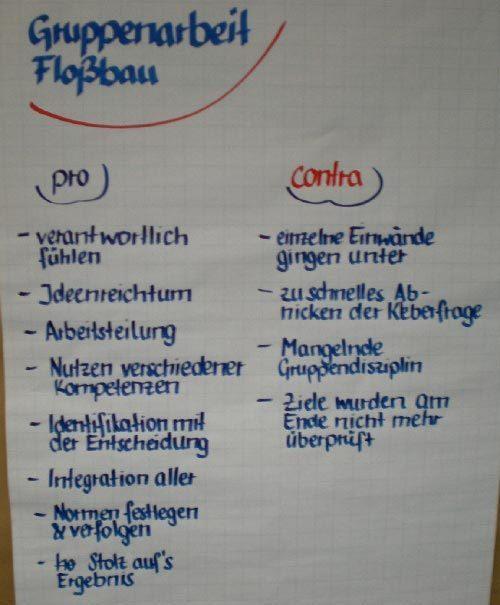 Gruppenarbeit
Floßbau
pro
- verantwortlich
fühlen
- Ideenreichtum
- Arbeitsteilung
- Nutzen verschiedener
Kompetenzen
- Identifikation mit
der Entscheidung
- Integration aller
- Normen festlegen
& verfolgen
- ho Stolz auf's
Ergebnis
contra
- einzelne Einwände
gingen unter
- zu schnelles Ab-
nicken der Kleberfrage
- Mangelnde
Gruppendisziplin
- Ziele wurden am
Ende nicht mehr
überprüft